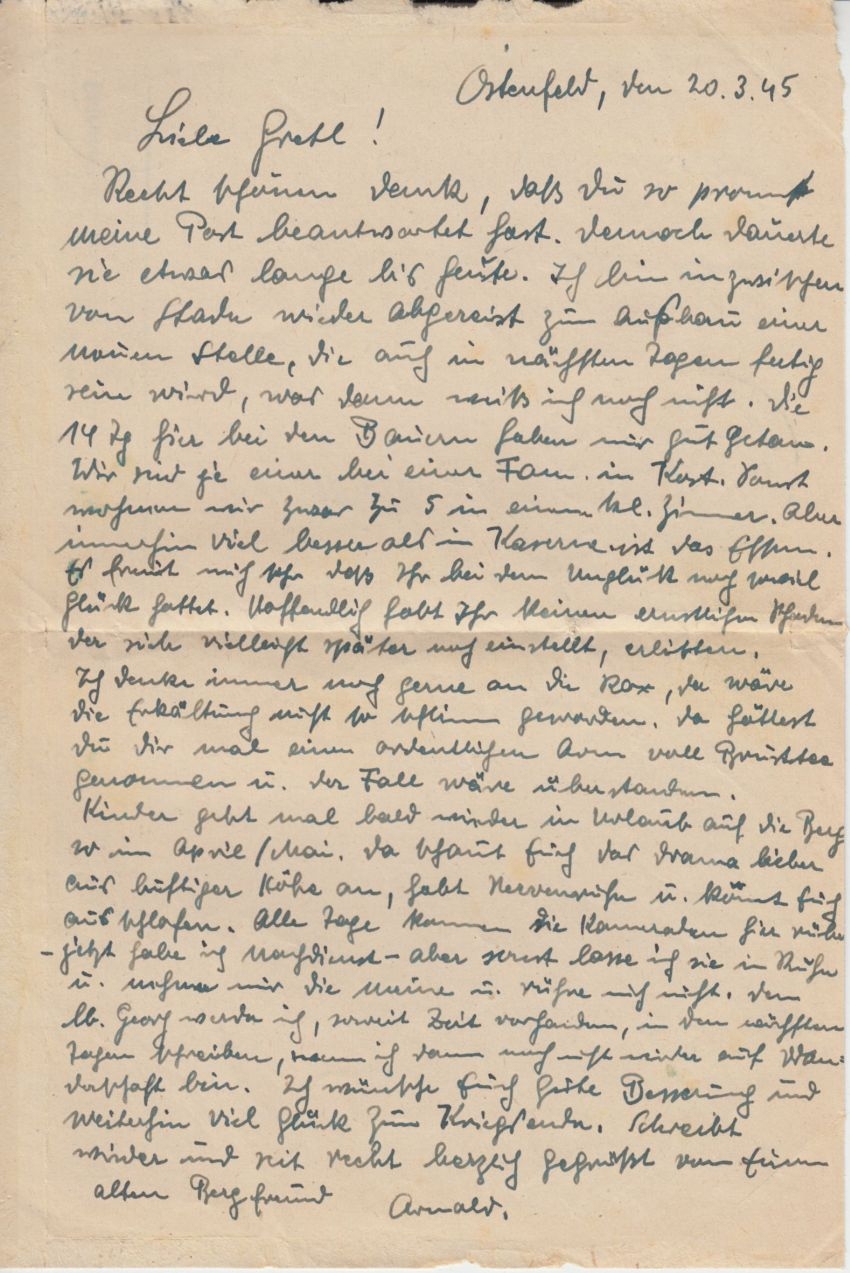 Ostenfeld, den 20.3.45
Liebe Gretl!
Recht schönen Dank, daß Du so prompt
meine Post beantwortet hast. Dennoch dauerte
sie etwas lange bis heute. Ich bin inzwischen
von Stade wieder abgereist zum Aufbau einer
neuen Stelle, die auch in nächsten Tagen fertig
sein wird, was dann weiß ich noch nicht. Die
14 Tg hier bei den Bauern haben mir gut getan.
Wir sind je einer bei einer Fam. in Kost. Sonst
wohnen wir zwar zu 5 in einem kl. Zimmer. Aber
immerhin viel besser als in Kaserne ist das Essen.
Es freut mich sehr daß Ihr bei dem Unglück noch soviel
Glück hattet. Hoffendlich habt Ihr keinen ernstlichen Schaden
der sich vielleicht später noch einstellt, erlitten.
Ich denke immer noch gerne an die Rax, da wäre
die Erkältung nicht so schlimm geworden. Da hättest
Du Dir mal einen ordentlichen Arm voll Brusttee
genommen u. der Fall wäre überstanden.
Kinder geht mal bald wieder in Urlaub auf die Berg
so im April/Mai. Da schaut Euch das Drama lieber
aus luftiger Höhe an, habt Nervenruhe u. könnt Euch
ausschlafen. Alle Tage kommen die Kameraden hier rüber
- jetzt habe ich Nachdienst - aber sonst lasse ich sie in Ruhe
u. nehme mir die meine u. rühre mich nicht. Dem
lb. Georg werde ich, soweit Zeit vorhanden, in den nächsten
Tagen schreiben, wenn ich dann noch nicht wieder auf Wan-
derschaft bin. Ich wünsche Euch gute Besserung und
weiterhin viel Glück zum Kriegsende. Schreibt
wieder und seit recht herzlich gegrüßt von Eurem
alten Bergfreund Arnold.